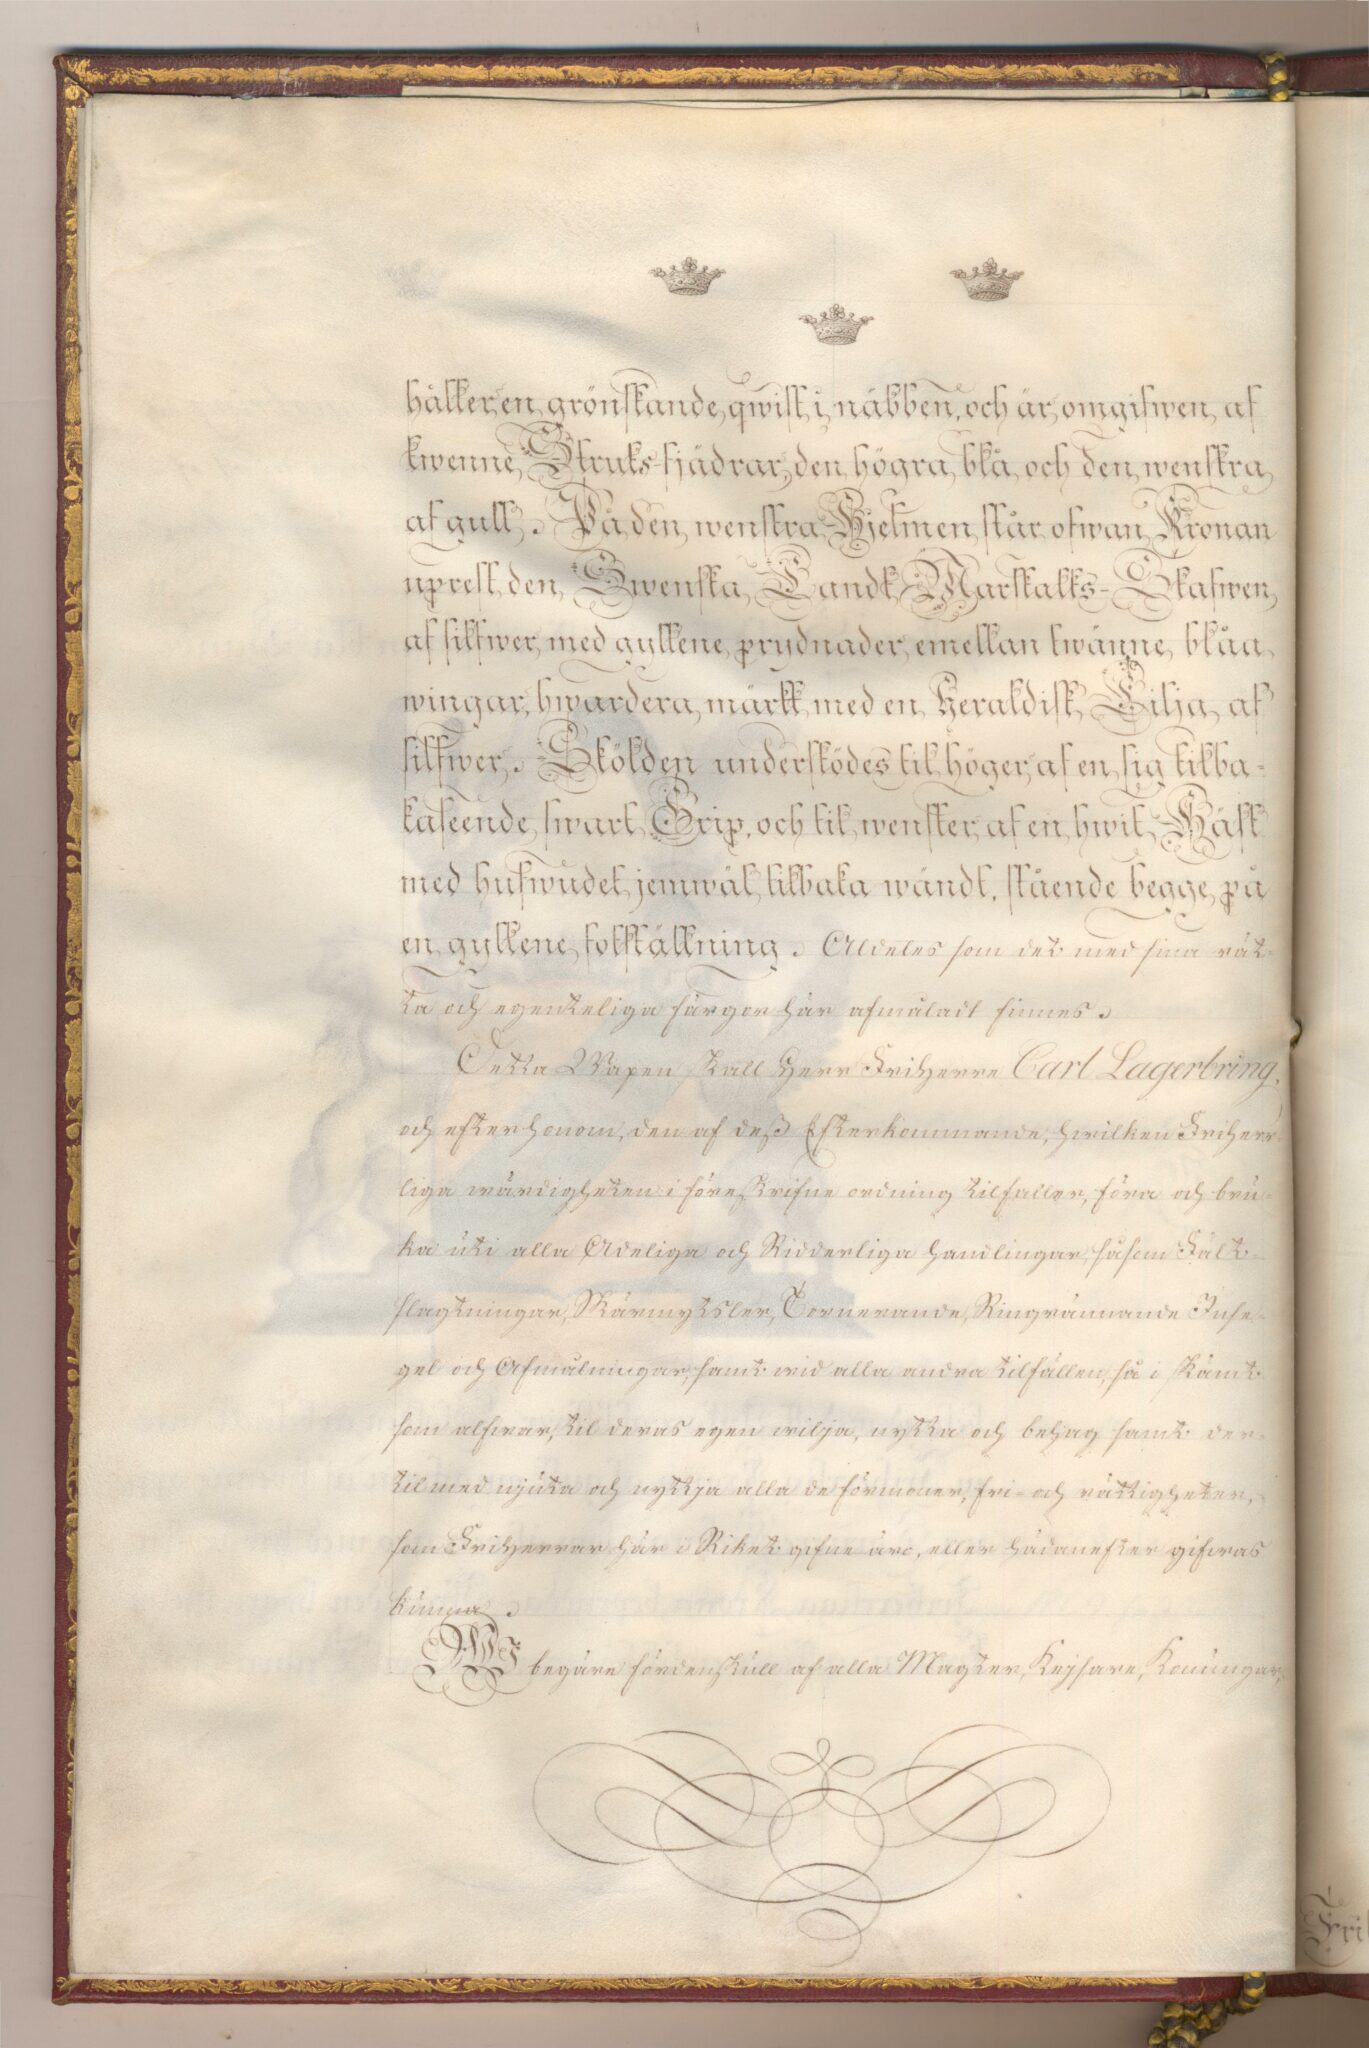 håller en grönskande qwist i näbben, och är omgifwen af
twenne Struts-fjädrar, den högra blå och den wenstra
af gull. På den wenstra Hjelmen står ofwan Kronan
uprest den Swenska Landt Marskalks-Stafwen
af silfwer med gyllene prydnader, emellan twänne blåa
wingar, hwardera märkt med en Heraldisk Lilja af
silfwer. Skölden understödes til höger af en sig tilba-
kaseende swart Grip, och til wenster af en hwit Häst
med hufwudet jemwäl tilbaka wändt, stående begge på
en gyllene fotställning. Aldeles som det med sina rät-
ta och egenteliga färgor här afmåladt finnes.
Detta Wapen skall Herr FriHerre Carl Lagerbring,
och efter honom, den af deß Efterkommande, hwilken Friherr-
liga wärdigheten i föreskrifne ordning tilfaller, föra och bru-
ka uti alla Adeliga och Ridderliga handlingar, såsom Fält-
slagtningar, Skärmytsler, Tornerande, Ringrännande Inse-
gel och Afmålningar, samt wid alla andra tilfällen, så i skämt
som alfwar, til deras egen wilja, nytta och behag samt der-
til med njuta och nyttja alla de förmoner, fri- och rättigheter,
som FriHerrar här i Riket gifne äro, eller hädanefter gifwas
kunna.
WI begäre fördenskull af alla Magter, Kejsare, Konungar,
Fri